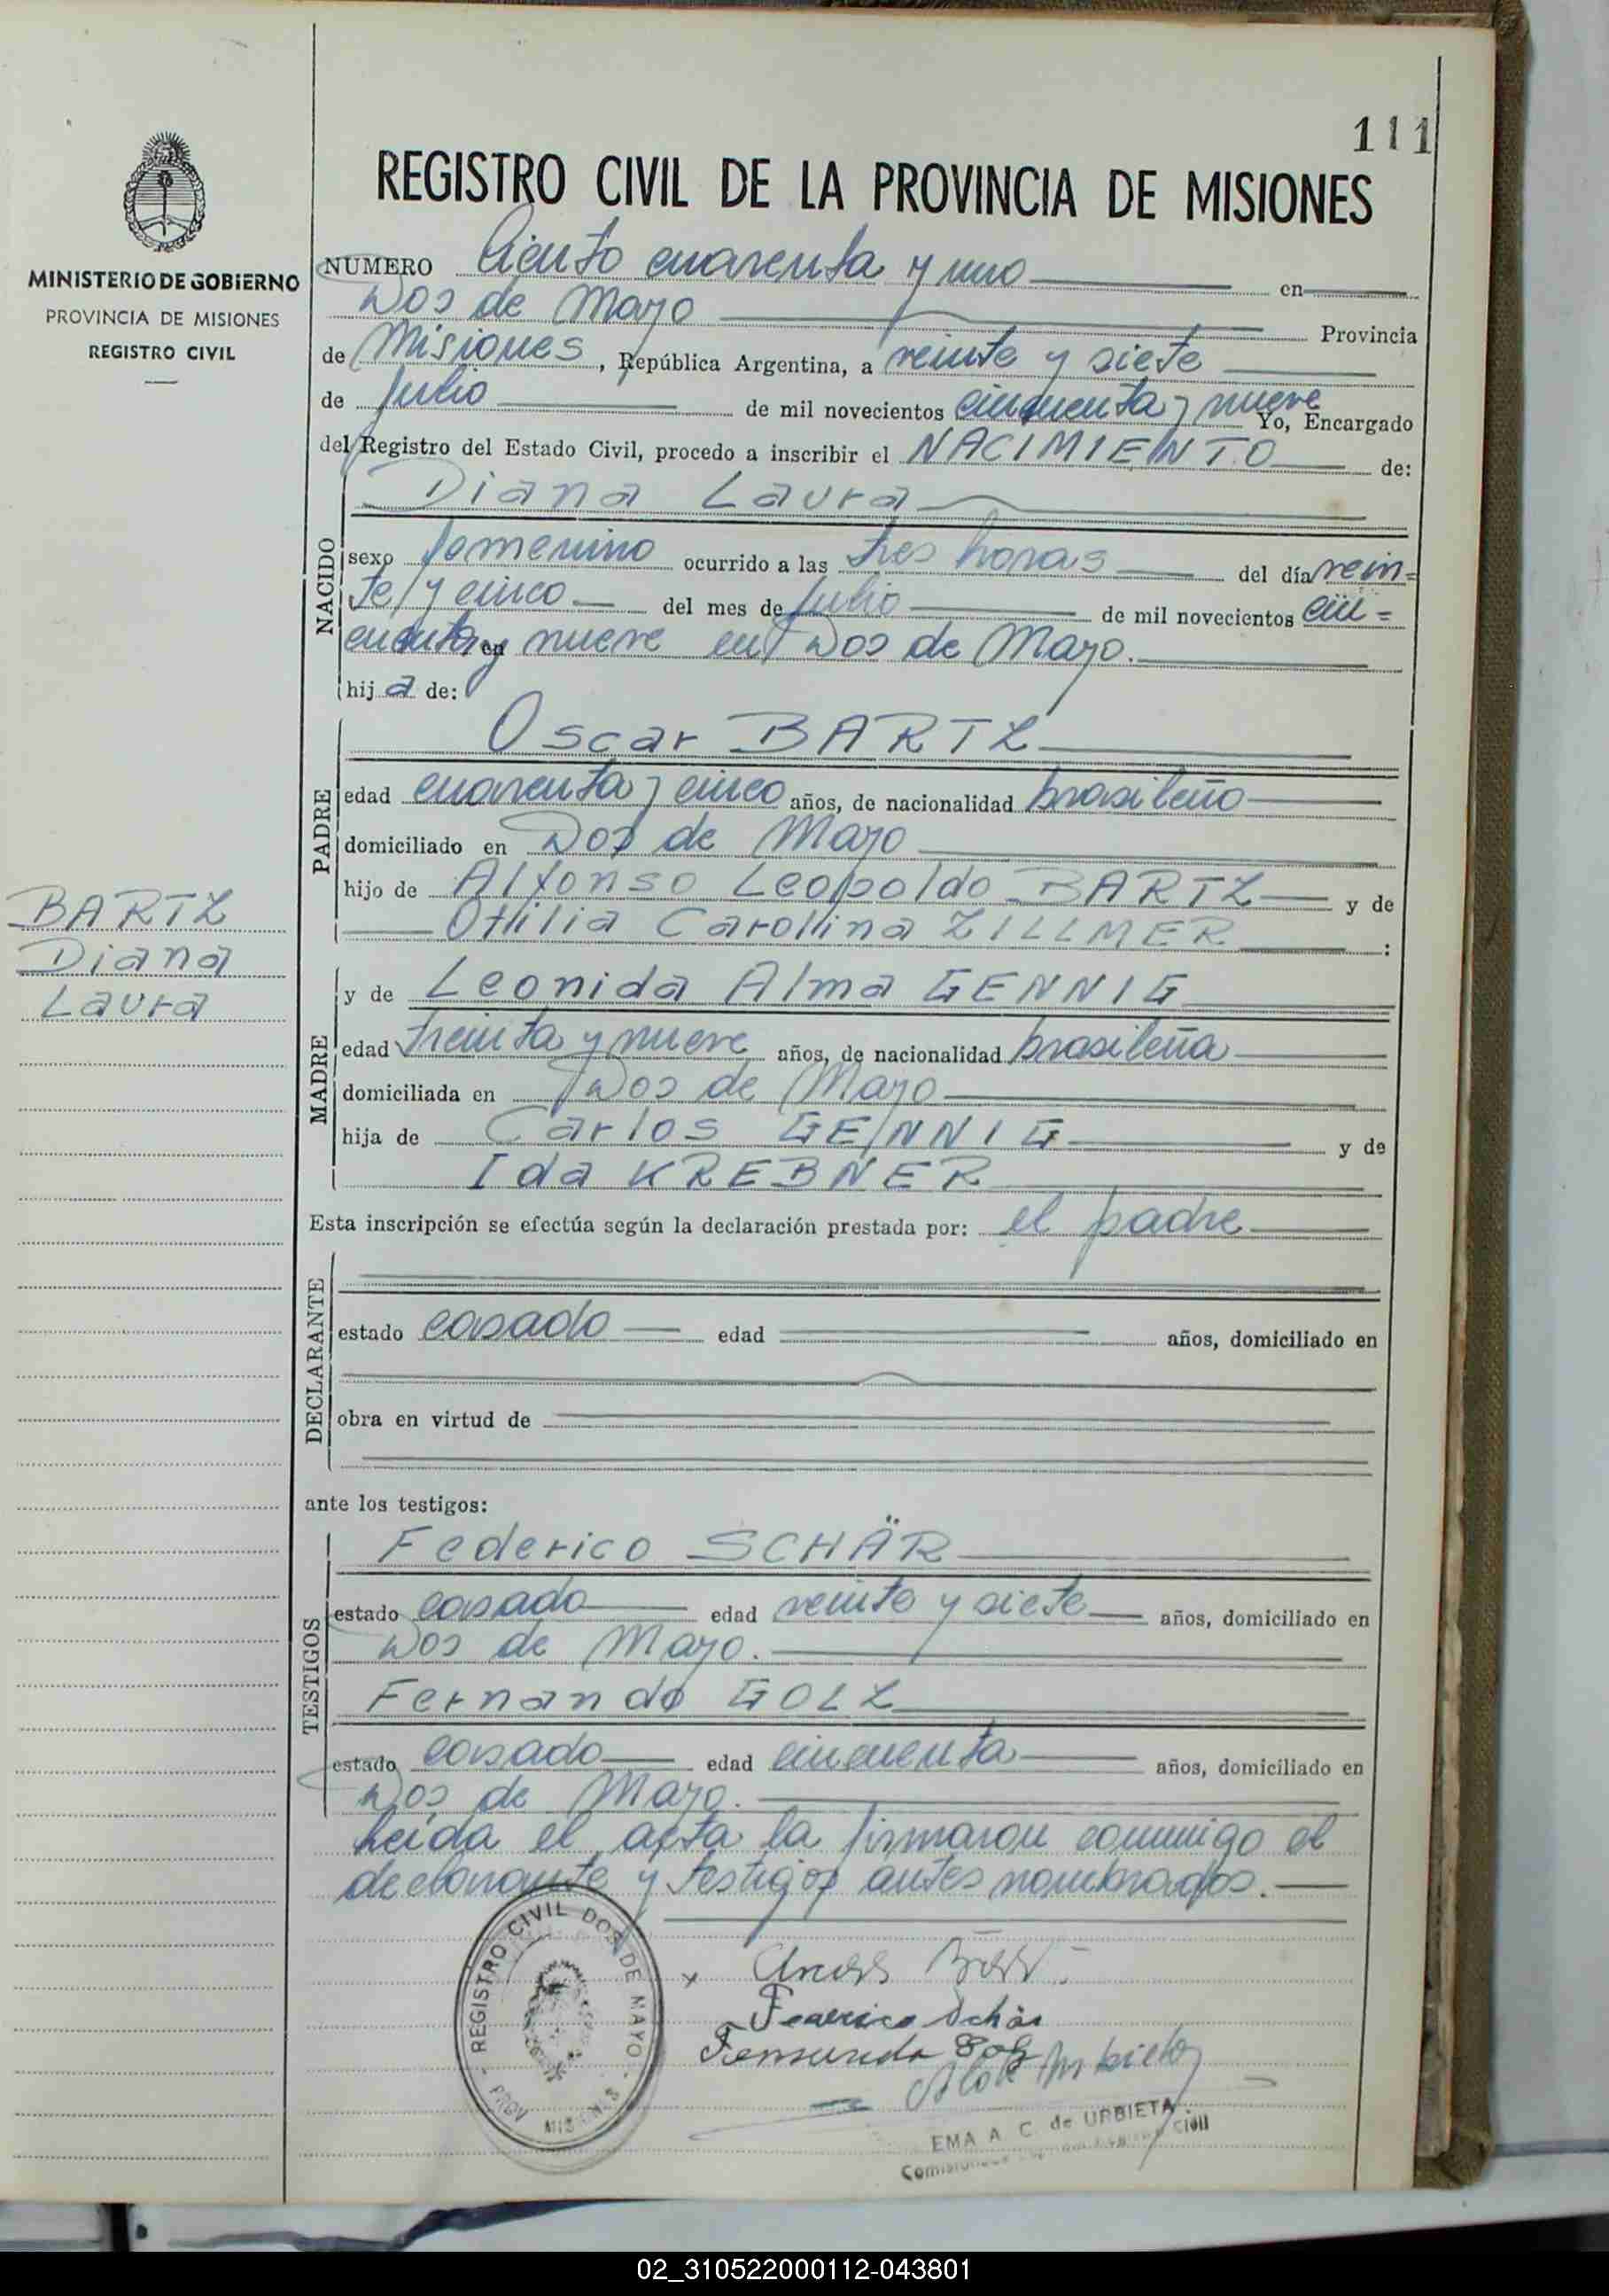 111
REGISTRO CIVIL DE LA PROVINCIA DE MISIONES
MINISTERIO DE GOBIERNO
PROVINCIA DE MISIONES
REGISTRO CIVIL
NUMERO Ciento cuarenta y uno en
Dos de Mayo Provincia
de Misiones, República Argentina, a veinte y siete
de Julio de mil novecientos cincuenta y nueve Yo, Encargado
del Registro del Estado Civil, procedo a inscribir el NACIMIENTO de:
NACIDO
Diana Laura
sexo femenino ocurrido a las tres horas del día vein=
te y cinco del mes de Julio de mil novecientos cin=
cuenta y en nueve en Dos de Mayo.
hija de:
PADRE
Oscar BARTZ
edad cuarenta y cinco años, de nacionalidad brasileño
domiciliado en Dos de Mayo
hijo de Alfonso Leopoldo BARTZ y de
Othilia Carollina ZILLMER :
BARTZ
Diana
Laura
MADRE
y de Leonida Alma GENNIG
edad treinta y nueve años, de nacionalidad brasileña
domiciliada en Dos de Mayo
hija de Carlos GENNIG y de
Ida KREBNER
Esta inscripción se efectúa según la declaración prestada por: el padre
DECLARANTE
estado casado edad años, domiciliado en
obra en virtud de
ante los testigos:
TESTIGOS
Federico SCHÄR
estado casado edad veinte y siete años, domiciliado en
Dos de Mayo.
Fernando GOLZ
estado casado edad cincuenta años, domiciliado en
Dos de Mayo.
Leída el acta la firmaron conmigo el
declarante y testigos antes nombrados.
REGISTRO CIVIL DOS DE MAYO
PROV MISIONES
Federico Schär
Fernando Golz
EMA A. C. de URBIETA
Civil
02_310522000112-043801